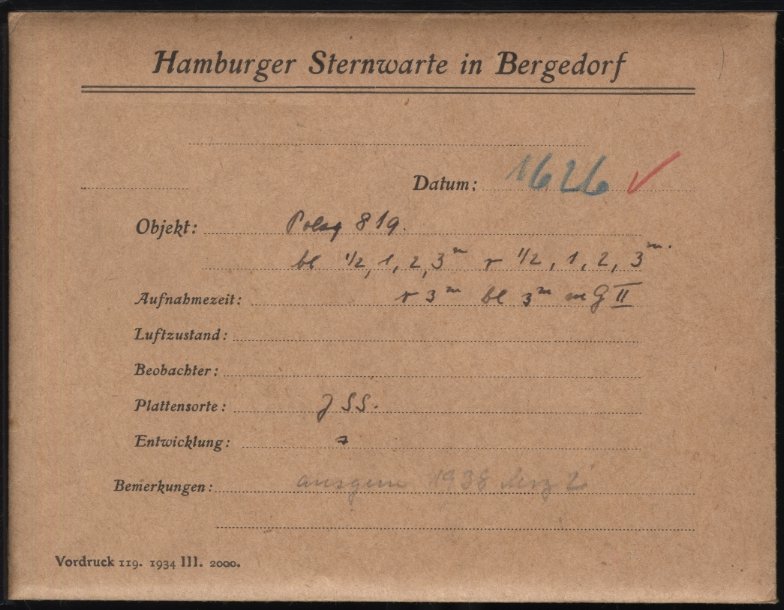 Hamburger Sternwarte in Bergedorf
Datum: 1626 ✓
Objekt: Polsq 819.
bl 1/2, 1, 2, 3ᵐ r 1/2, 1, 2, 3ᵐ.
Aufnahmezeit: r 3ᵐ bl 3ᵐ m G II
Luftzustand:
Beobachter:
Plattensorte: J SS.
Entwicklung:
Bemerkungen: 1938
Vordruck 119. 1934 III. 2000.